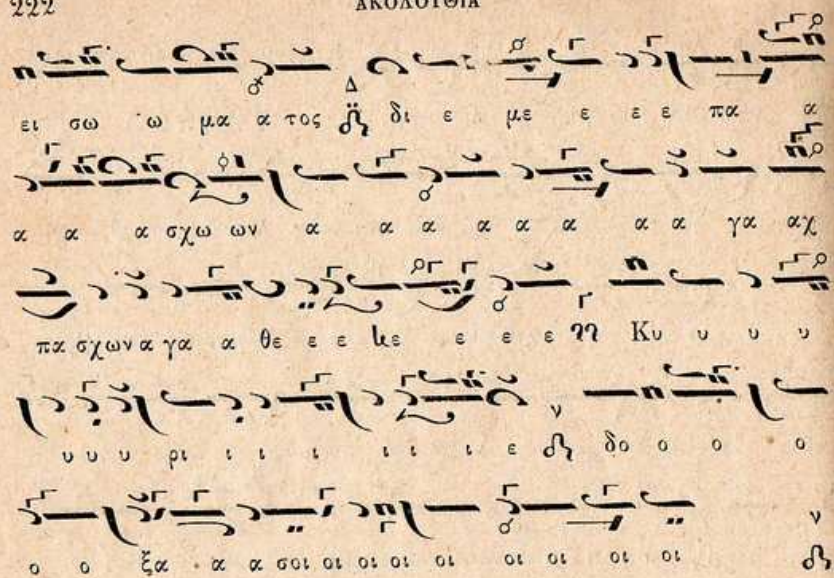 222 ΑΚΟΛΟΥΘΙΑ
ει σω ω μα α τος Δ δι ε με ε ε ε πα α
α α α σχω ων α α α α α α α α γα αχ
πα σχων α γα α θε ε ε κε ε ε ε Κυ υ υ υ υ
υ υ υ ρι ι ι ι ι ι ι ε ν δο ο ο ο
ο ο ξα α α σοι οι οι οι οι οι οι οι οι ν